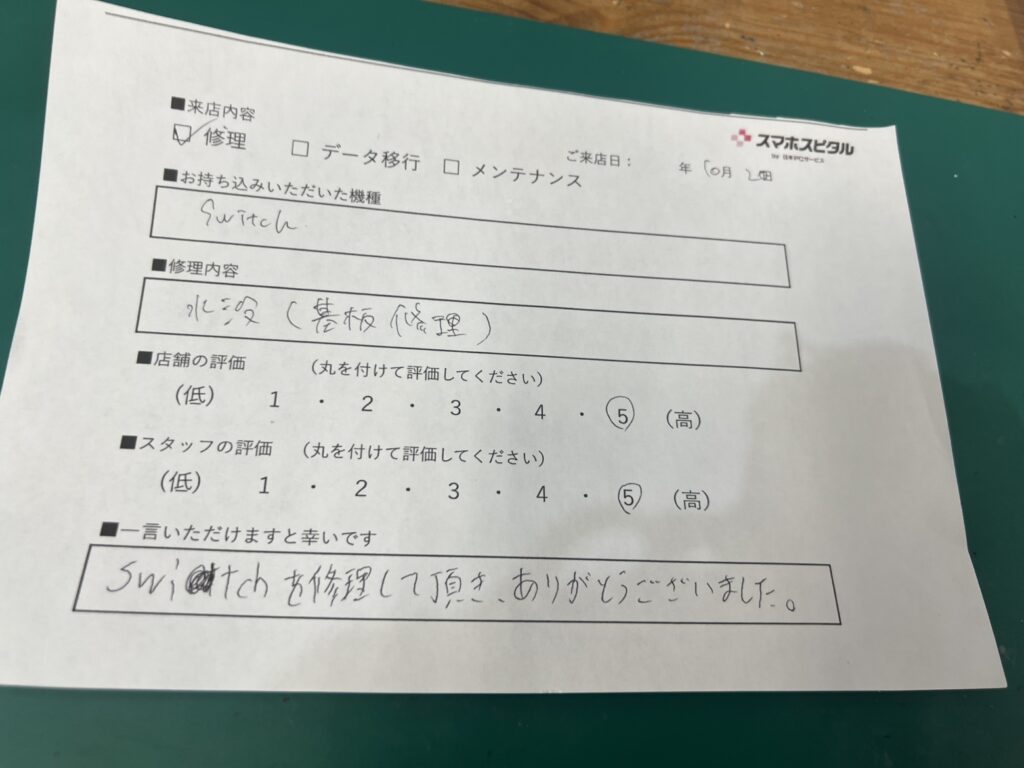 ■来店内容
スマホスピタル
by 日本PCサービス
☑ 修理 □ データ移行 □ メンテナンス
ご来店日： 年 10月 日
■お持ち込みいただいた機種
Switch
■修理内容
水没（基板修理）
■店舗の評価 （丸を付けて評価してください）
（低） 1 ・ 2 ・ 3 ・ 4 ・ 5 （高）
■スタッフの評価 （丸を付けて評価してください）
（低） 1 ・ 2 ・ 3 ・ 4 ・ 5 （高）
■一言いただけますと幸いです
Switchを修理して頂き、ありがとうございました。